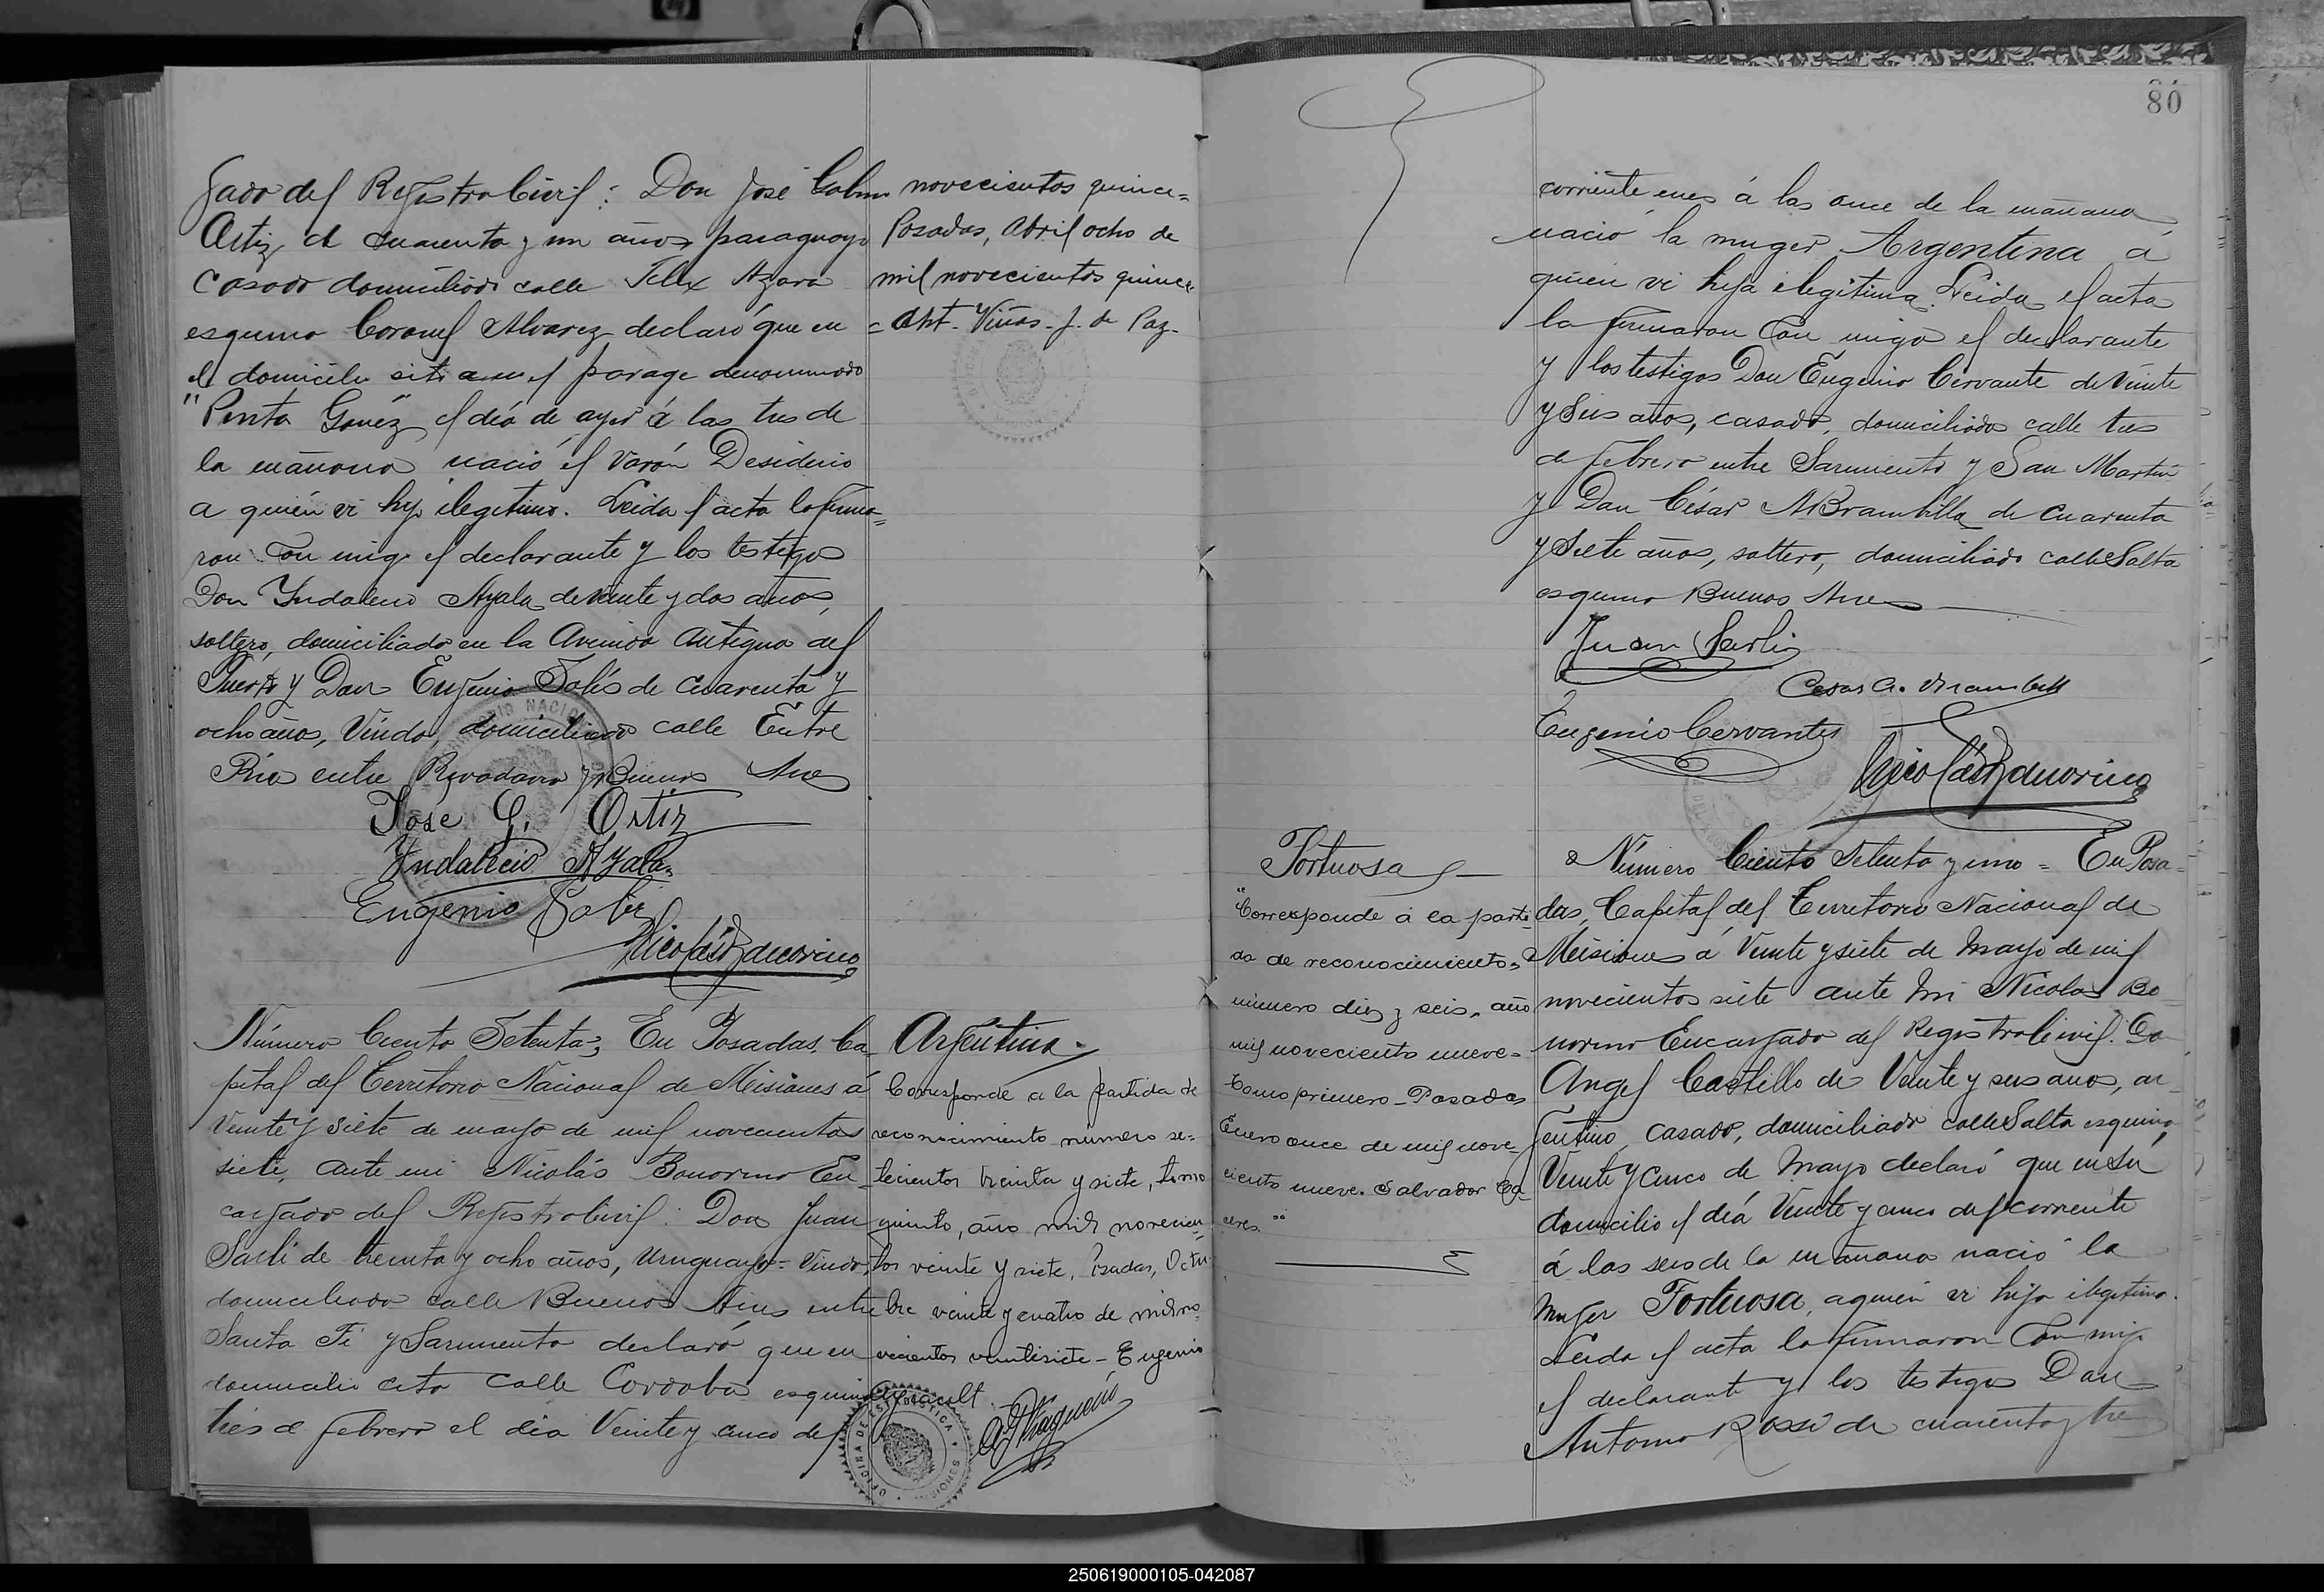 gado del Registro Civil: Don José Gabin
Ortiz, de cuarenta y un años, paraguayo
casado domiciliado calle Felix Azara
esquina Coronel Alvarez declaró que en
el domicilio sito en el parage denominado
"Punta Gomez" el día de ayer á las tres de
la mañana nació el varón Desiderio
a quién vi hijo ilegitimo. Leida el acta la firma=
ron con migo el declarante y los testigos
Don Yndalecio Ayala de veinte y dos años,
soltero, domiciliado en la Avenida Antigua del
Puerto y Don Eugenio Solís de cuarenta y
ocho años, Viudo, domiciliado calle Entre
Rios entre Rivadavia y Buenos Aires
José G. Ortiz
Yndalecio Ayala
Eugenio Solis
Nicolás Bonorino
novecientos quince=
Posadas, Abril ocho de
mil novecientos quince
= Ant. Viñas - J. de Paz -
Número Ciento Setenta; En Posadas, Ca-
pital del Territorio Nacional de Misiones á
Veinte y siete de mayo de mil novecientos
siete, ante mi Nicolás Bonorino En-
cargado del Registro Civil: Don Juan
Sarli de treinta y ocho años, Uruguayo = Viudo,
domiciliado calle Buenos Aires entre
Santa Fé y Sarmiento declaró que en
domicilio cito calle Cordoba esquina
tres de febrero el día Veinte y cinco del
Argentina.
Corresponde a la partida de
reconocimiento número se-
tecientos treinta y siete, tomo
quinto, año mil novecien-
tos veinte y siete, Posadas, Octu-
bre veinte y cuatro de mil no-
vecientos veintisiete - Eugenio
OFICINA DE ESTADISTICA
80
corriente mes á las once de la mañana
nació la muger Argentina á
quien vi hija ilegitima. Leida el acta
la firmaron con migo el declarante
y los testigos Don Eugenio Cervante de Veinte
y Seis años, casado, domiciliado calle tres
de febrero entre Sarmiento y San Martin
y Don César A. Brambilla de Cuarenta
y Siete años, soltero, domiciliado calle Salta
esquina Buenos Aires
Juan Sarli
Cesar A. Brambilla
Eugenio Cervantes
Nicolás Bonorino
Tortuosa
"Corresponde á la parti-
da de reconocimiento,
número diez y seis, año
mil novecientos nueve=
Tomo primero - Posadas
Enero once de mil nove-
ciento nueve. Salvador Ca-
ceres"
Número Ciento Setenta y uno = En Posa-
das, Capital del Territorio Nacional de
Misiones á Veinte y siete de Mayo de mil
novecientos siete ante mi Nicolas Bo-
norino Encargado del Registro Civil: Don
Angel Castillo de Veinte y seis años, ar-
gentino, casado, domiciliado calle Salta esquina
Veinte y Cinco de Mayo declaró que en su
domicilio el día Veinte y cinco del corriente
á las seis de la mañana nació la
Muger Tortuosa, a quien vi hija ilegitima.
Leida el acta la firmaron con migo
el declarante y los testigos Don
Antonio Rossi de cuarenta y tres
250619000105-042087